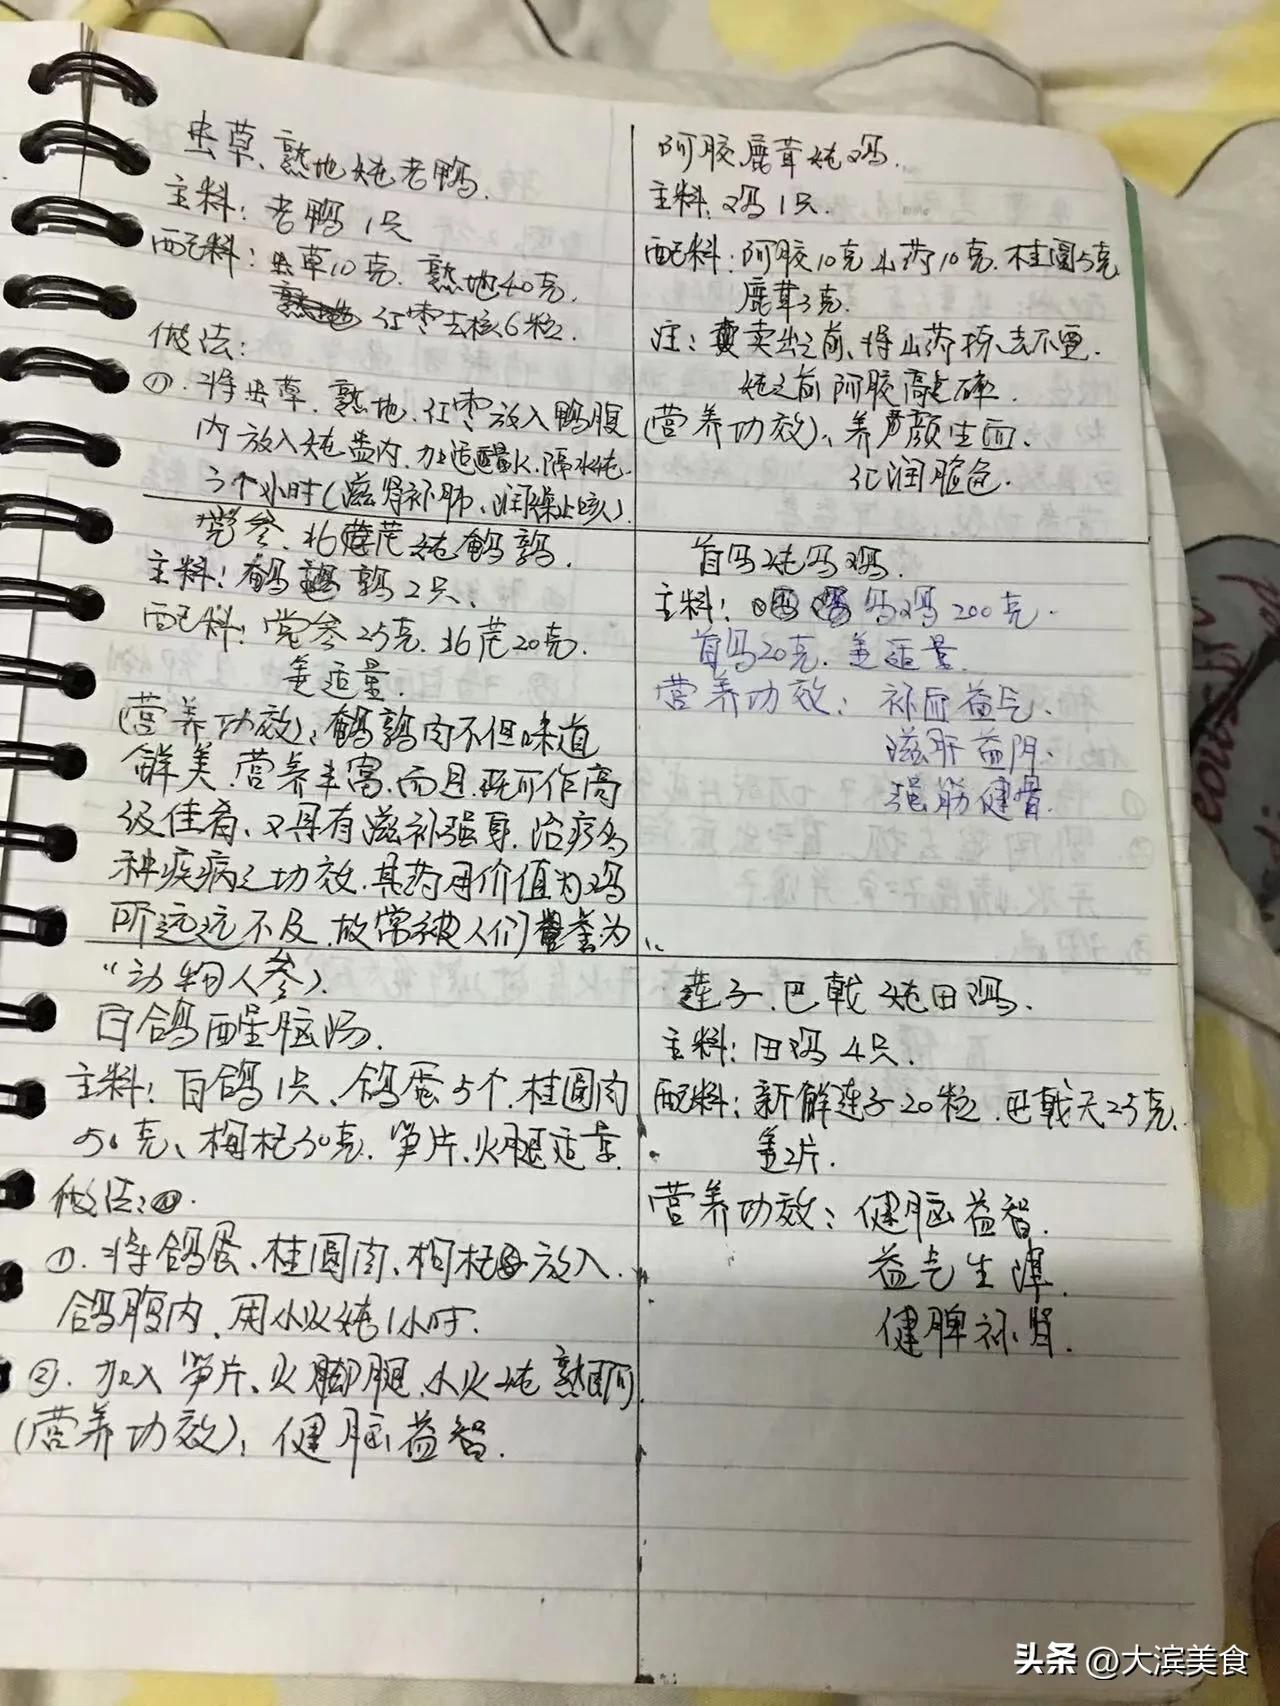 虫草、熟地炖老鸭.
主料: 老鸭1只
配料: 虫草10克. 熟地40克.
红枣去核6粒.
做法:
①. 将虫草. 熟地. 红枣放入鸭腹
内放入炖盅内. 加适量水. 隔水炖.
3个小时(滋肾补肺、润燥止咳).
党参. 北芪炖鹌鹑.
主料: 鹌鹑2只、
配料: 党参25克. 北芪20克.
姜适量.
(营养功效): 鹌鹑肉不但味道
鲜美. 营养丰富. 而且. 既可作高
级佳肴、又具有滋补强身. 治疗多
种疾病之功效. 其药用价值为鸡
所远远不及. 故常被人们誉为
“动物人参).
白鸽醒脑汤.
主料: 白鸽1只、鸽蛋5个. 桂圆肉
50克、枸杞30克. 笋片、火腿适量.
做法:
①. 将鸽蛋、桂圆肉、枸杞放入.
鸽腹内、用小火炖1小时.
②. 加入笋片、火脚腿. 小火炖熟即可.
(营养功效): 健脑益智.
阿胶鹿茸炖鸡.
主料: 鸡1只.
配料: 阿胶10克 山药10克. 桂圆5克
鹿茸3克.
注: 卖出之前、将山药拣去不要.
炖之前阿胶高点碎.
(营养功效): 养颜生血.
红润脸色.
首乌炖乌鸡.
主料: 乌鸡200克.
首乌20克. 姜适量.
营养功效: 补血益气.
滋肝益阴、
强筋健骨.
莲子. 巴戟炖田鸡.
主料: 田鸡4只.
配料: 新鲜莲子20粒. 巴戟天25克.
姜2片.
营养功效: 健脑益智.
益气生津.
健脾补肾.
头条 @大滨美食